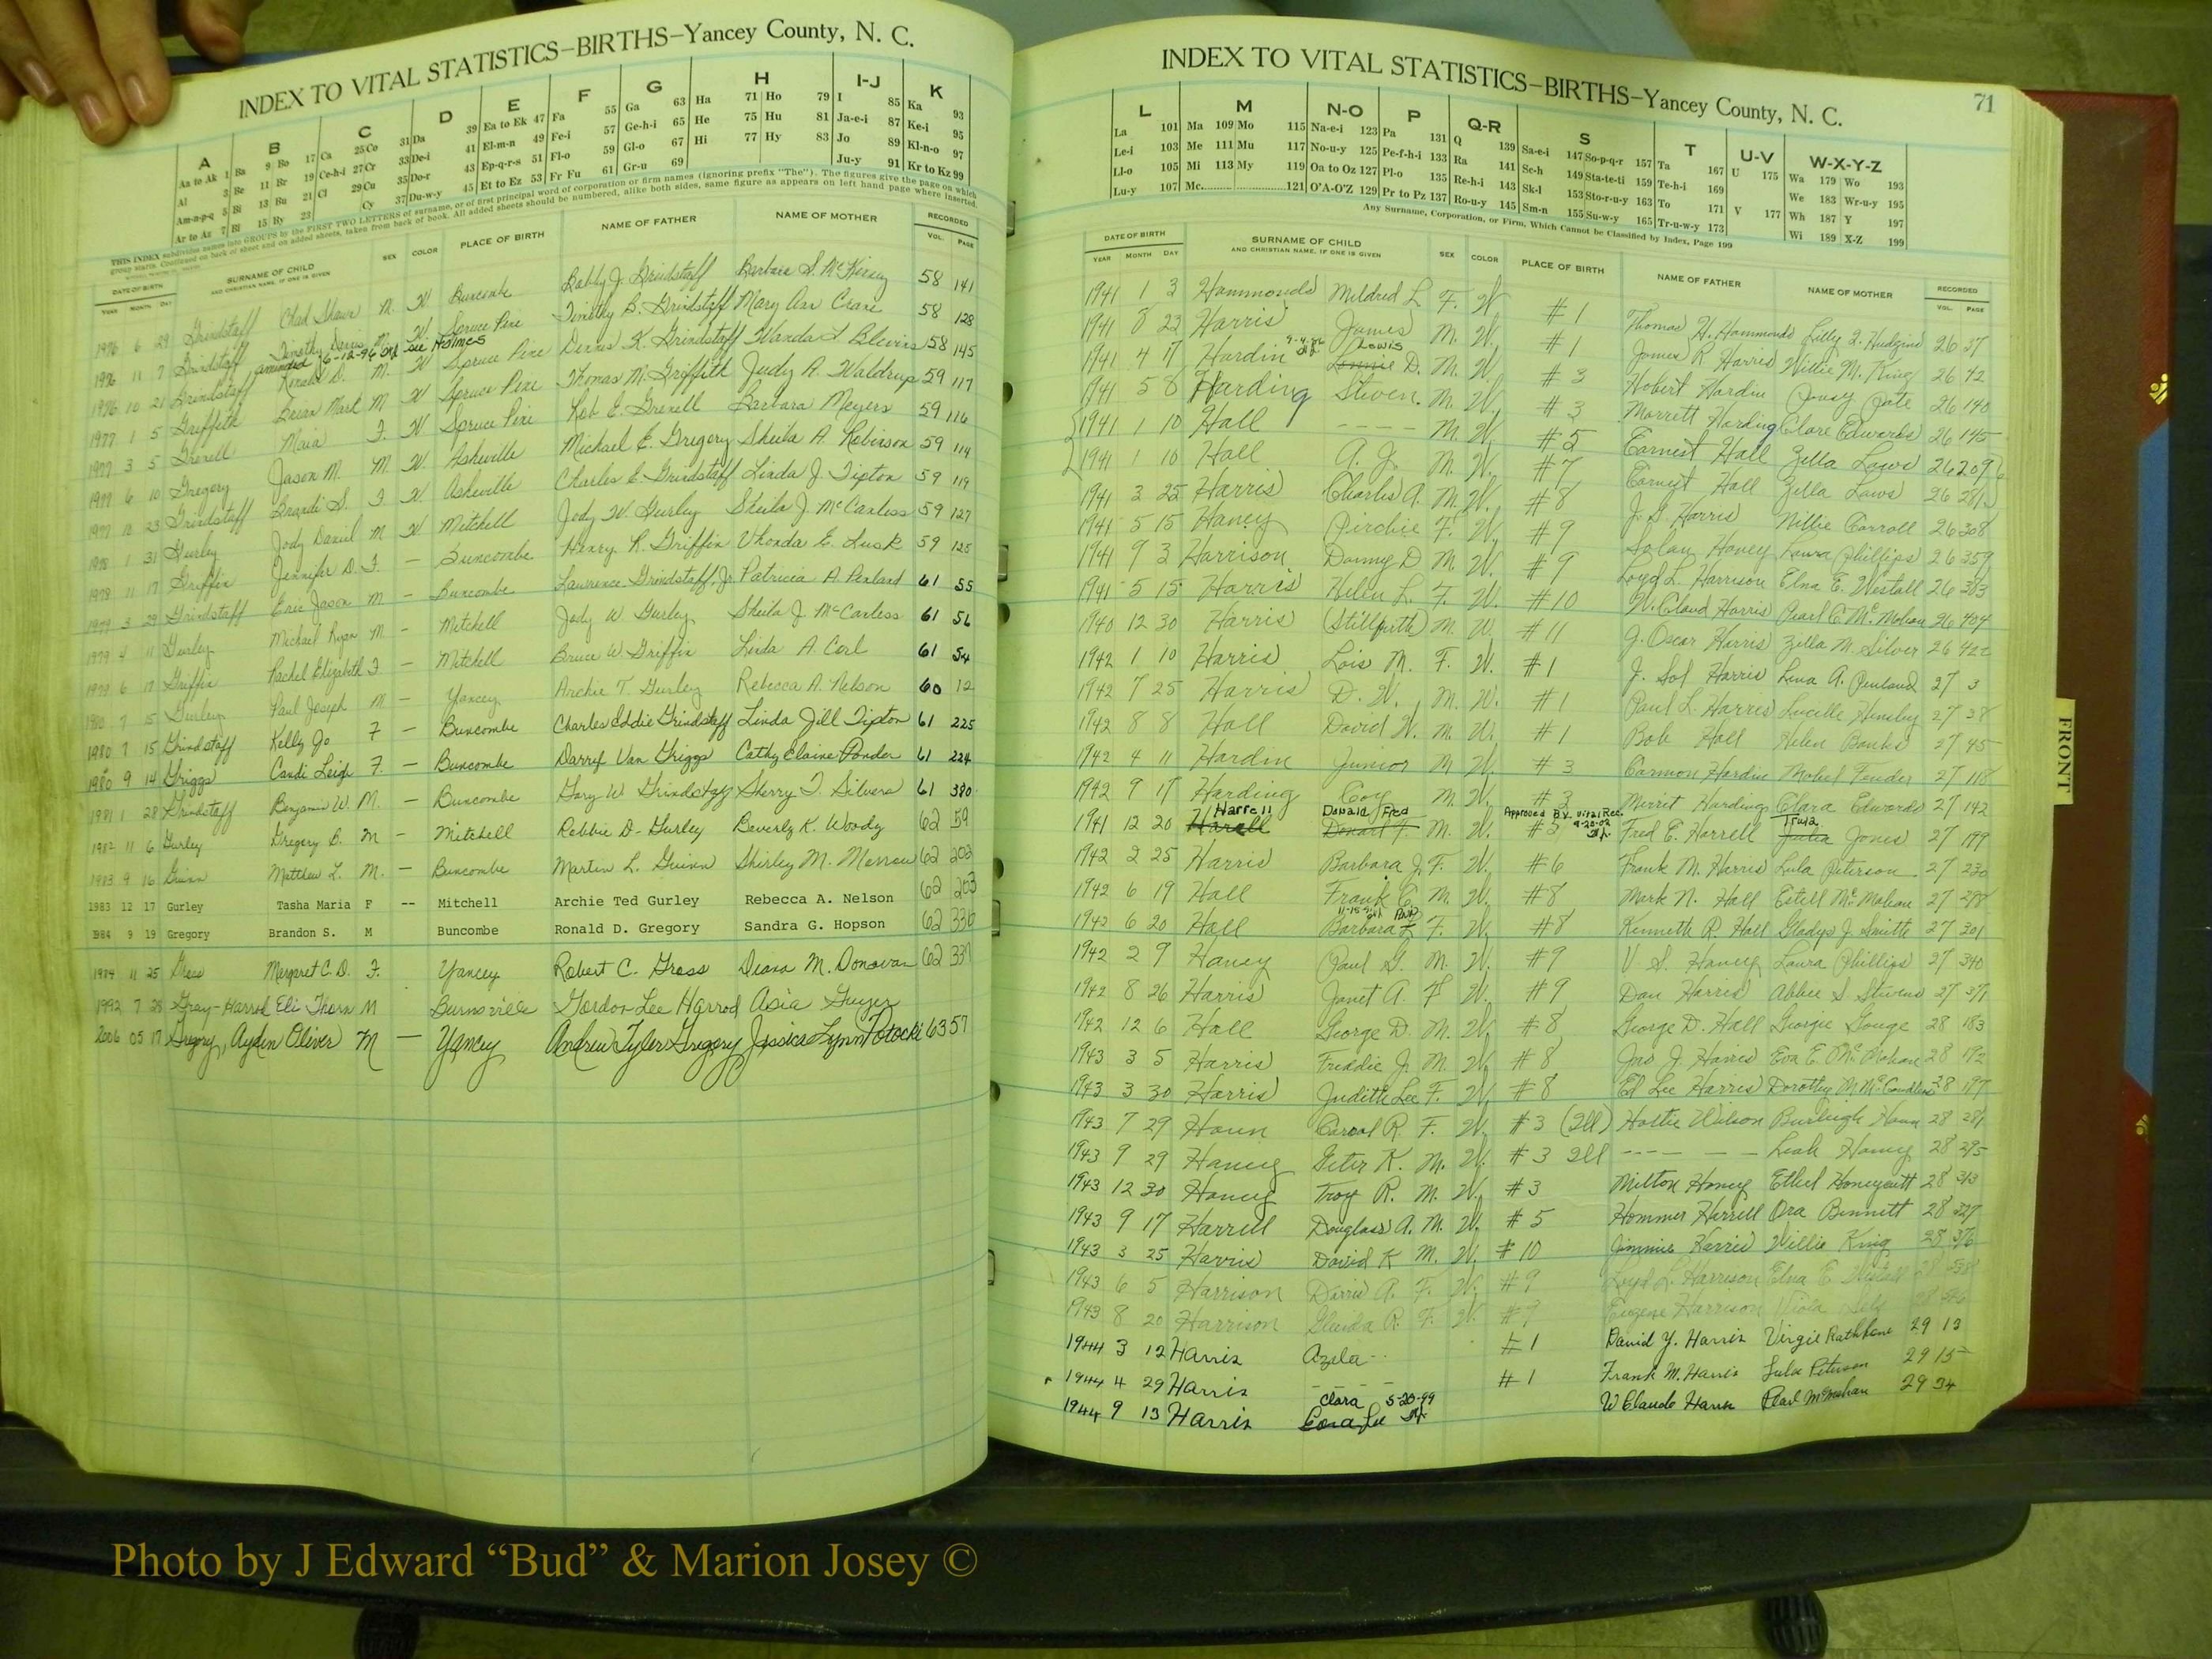 INDEX TO VITAL STATISTICS—BIRTHS—Yancey County, N. C.
A B C D E F G H I-J K
Aa to Ak 1 Ba 9 Bo 17 Ca 25 Co 31 Da 39 Ea to Ek 47 Fa 55 Ga 63 Ha 71 Ho 79 I 85 Ka 93
Al 3 Be 11 Br 19 Ce-h-i 27 Cr 33 De-i 41 El-m-n 49 Fe-i 57 Ge-h-i 65 He 75 Hu 81 Ja-e-i 87 Ke-i 95
Am-n-p-q 5 Bi 13 Bu 21 Cl 29 Cu 35 Do-r 43 Ep-q-r-s 51 Fl-o 59 Gl-o 67 Hi 77 Hy 83 Jo 89 Kl-n-o 97
Ar to Az 7 Bl 15 By 23 Cy 37 Du-w-y 45 Et to Ez 53 Fr Fu 61 Gr-u 69 Ju-y 91 Kr to Kz 99
THIS INDEX subdivides names into GROUPS by the FIRST TWO LETTERS of surname, or of first principal word of corporation or firm names (ignoring prefix "The"). The figures give the page on which
group starts. Continued on back of sheet and on added sheets, taken from back of book. All added sheets should be numbered, alike both sides, same figure as appears on left hand page where inserted.
DATE OF BIRTH SURNAME OF CHILD SEX COLOR PLACE OF BIRTH NAME OF FATHER NAME OF MOTHER RECORDED
YEAR MONTH DAY AND CHRISTIAN NAME, IF ONE IS GIVEN VOL. PAGE
1976 6 29 Grindstaff Chad Shawn M. W Buncombe Bobby J. Grindstaff Barbara S. McKinney 58 141
1976 11 7 Grindstaff Timothy W Spruce Pine Timothy B. Grindstaff Mary Ann Crane 58 128
amended 6-12-96 see Holmes
1976 10 21 Grindstaff Ronald D. M. W Spruce Pine Dennis K. Grindstaff Wanda L Blevins 58 145
1977 1 5 Griffith Brian Mark M W Spruce Pine Thomas M. Griffith Judy A. Waldrup 59 117
1977 3 5 Grenell Maia F. W Spruce Pine Rob E. Grenell Barbara Meyers 59 116
1977 6 10 Gregory Jason M. M. W. Asheville Michael E. Gregory Sheila A. Robinson 59 114
1977 12 23 Grindstaff Brandi S. F W Asheville Charles E. Grindstaff Linda J. Tipton 59 119
1978 1 31 Gurley Jody Daniel M W. Mitchell Jody W. Gurley Sheila J. McCanless 59 127
1978 11 17 Griffin Jennifer D. F. — Buncombe Henry R. Griffin Vhonda E. Lusk 59 125
1979 3 29 Grindstaff Eric Jason M — Buncombe Lawrence Grindstaff, Jr Patricia A. Penland 61 55
1979 4 11 Gurley Michael Ryan M — Mitchell Jody W. Gurley Sheila J. McCanless 61 56
1979 6 17 Griffin Rachel Elizabeth F — Mitchell Bruce W Griffin Linda A. Corl 61 54
1980 7 15 Gurley Paul Joseph M — Yancey Archie T. Gurley Rebecca A. Nelson 60 12
1980 7 15 Grindstaff Kelly Jo F — Buncombe Charles Eddie Grindstaff Linda Jill Tipton 61 225
1980 9 14 Griggs Candi Leigh F. — Buncombe Darryl Van Griggs Cathy Elaine Ponder 61 224
1981 1 28 Grindstaff Benjamin W. M. — Buncombe Gary W Grindstaff Sherry T. Silvers 61 380
1982 11 6 Gurley Gregory B. M — Mitchell Robbie D. Gurley Beverly K. Woody 62 59
1983 9 16 Guinn Matthew L. M. — Buncombe Martin L. Guinn Shirley M. Morrow 62 203
1983 12 17 Gurley Tasha Maria F -- Mitchell Archie Ted Gurley Rebecca A. Nelson 62 203
1984 9 19 Gregory Brandon S. M Buncombe Ronald D. Gregory Sandra G. Hopson 62 336
1984 11 25 Gross Margaret C. D. F. Yancey Robert C. Gross Diana M. Donovan 62 337
1992 7 28 Gray-Harrod Eli Thorn M Burnsville Gordon Lee Harrod Asia Guyer
2006 05 17 Gregory, Ayden Oliver M — Yancey Andrew Tyler Gregory Jessica Lynn Potocki 63 57
71
INDEX TO VITAL STATISTICS—BIRTHS—Yancey County, N. C.
L M N-O P Q-R S T U-V W-X-Y-Z
La 101 Ma 109 Mo 115 Na-e-i 123 Pa 131 Q 139 Sa-e-i 147 So-p-q-r 157 Ta 167 U 175 Wa 179 Wo 193
Le-i 103 Me 111 Mu 117 No-u-y 125 Pe-f-h-i 133 Ra 141 Sc-h 149 Sta-te-ti 159 Te-h-i 169 We 183 Wr-u-y 195
Ll-o 105 Mi 113 My 119 Oa to Oz 127 Pl-o 135 Re-h-i 143 Sk-l 153 Sto-r-u-y 163 To 171 V 177 Wh 187 Y 197
Lu-y 107 Mc 121 O'A-O'Z 129 Pr to Pz 137 Ro-u-y 145 Sm-n 155 Su-w-y 165 Tr-u-w-y 173 Wi 189 X-Z 199
Any Surname, Corporation, or Firm, Which Cannot be Classified by Index, Page 199
DATE OF BIRTH SURNAME OF CHILD SEX COLOR PLACE OF BIRTH NAME OF FATHER NAME OF MOTHER RECORDED
YEAR MONTH DAY AND CHRISTIAN NAME, IF ONE IS GIVEN VOL. PAGE
1941 1 3 Hammonds Mildred L F. W. #1 Thomas H. Hammonds Lilly I. Hudgins 26 37
1941 8 23 Harris James M. W. #1 James R Harris Willie M. King 26 42
1941 4 17 Hardin Lewis Lonnie D. M. W. #3 Hobert Hardin Pate 26 140
1941 5 8 Harding Steven. M. W. #3 Morrett Harding Clara Edwards 26 145
1941 1 10 Hall ---- M. W. #5 Earnest Hall Zella Laws 26 209
1941 1 10 Hall A. J. M. W. #7 Earnest Hall Zella Laws 26
1941 3 25 Harris Charles A. M. W. #8 J. S Harris Willie Carroll 26 308
1941 5 15 Haney Birchie F. W. #9 Haney Laura Phillips 26 359
1941 9 3 Harrison Danny D M. W. #9 Loyd L. Harrison Elna E. Westall 26 363
1941 5 15 Harris Helen L. F. W. #10 W. Claud Harris Pearl C. McMahan 26 404
1940 12 30 Harris (Stillbirth) M. W. #11 J. Oscar Harris Zilla M. Silver 26 422
1942 1 10 Harris Lois M. F. W. #1 J. Sol Harris Lena A. Penland 27 3
1942 7 25 Harris D. W. M. W. #1 Paul L. Harris Lucille Hensley 27 38
1942 8 8 Hall David W. M. W. #1 Bob Hall Helen Banks 27 45
1942 4 11 Hardin Junior M W. #3 Carmon Hardin Mabel Fender 27 118
1942 9 17 Harding Coy M W. #3 Merrit Harding Clara Edwards 27 142
Harrell Donald Fred Approved B.V. Vital Rec. 9-20-02 Trula
1941 12 20 Harell Donald F. M. W. #5 Fred E. Harrell Julia Jones 27 179
1942 2 25 Harris Barbara J. F. W. #6 Frank M. Harris Lula Peterson 27 230
1942 6 19 Hall Frank C. M. W. #8 Mark N. Hall Estell McMahan 27 298
1942 6 20 Hall Barbara F. W. #8 Kenneth R. Hall Gladys J. Smith 27 301
1942 2 9 Haney Paul G. M. W. #9 V. S. Haney Laura Phillips 27 340
1942 8 26 Harris Janet A. F W. #9 Dan Harris Abbie S Stevens 27 371
1942 12 6 Hall George D. M. W. #8 George D. Hall Georgie Gouge 28 183
1943 3 5 Harris Freddie J. M. W. #8 Jas J. Harris Eva E. McMahan 28 192
1943 3 30 Harris Judith Lee F. W. #8 Ed Lee Harris Dorothy M. McCandless 28 197
1943 7 29 Haun Carool R. F. W. #3 (Ill) Hattie Wilson Burleigh Haun 28 281
1943 9 29 Haney Geter K. M. W. #3 Ill ---- -- Leah Haney 28 295
1943 12 30 Haney Troy R. M. W. #3 Milton Haney Ethel Honeycutt 28 313
1943 9 17 Harrell Douglass A. M. W. #5 Hommer Harrell Ora Bennett 28 327
1943 3 25 Harris David K M. W. #10 Jimmie Harris Willie King 28 376
1943 6 5 Harrison Dorris A. F. W. #9 Loyd L. Harrison Elna E. Westall 28
1943 8 20 Harrison Glenda R. F. W. #9 Eugene Harrison Viola 28
1944 3 12 Harris Azalea #1 David Y. Harris Virgie Rathbone 29 13
1944 4 29 Harris ---- #1 Frank M. Harris Lula Peterson 29 15
Clara 5-20-99
1944 9 13 Harris Cora Lee W Claude Harris Pearl McMahan 29 34
FRONT
Photo by J Edward “Bud” & Marion Josey ©